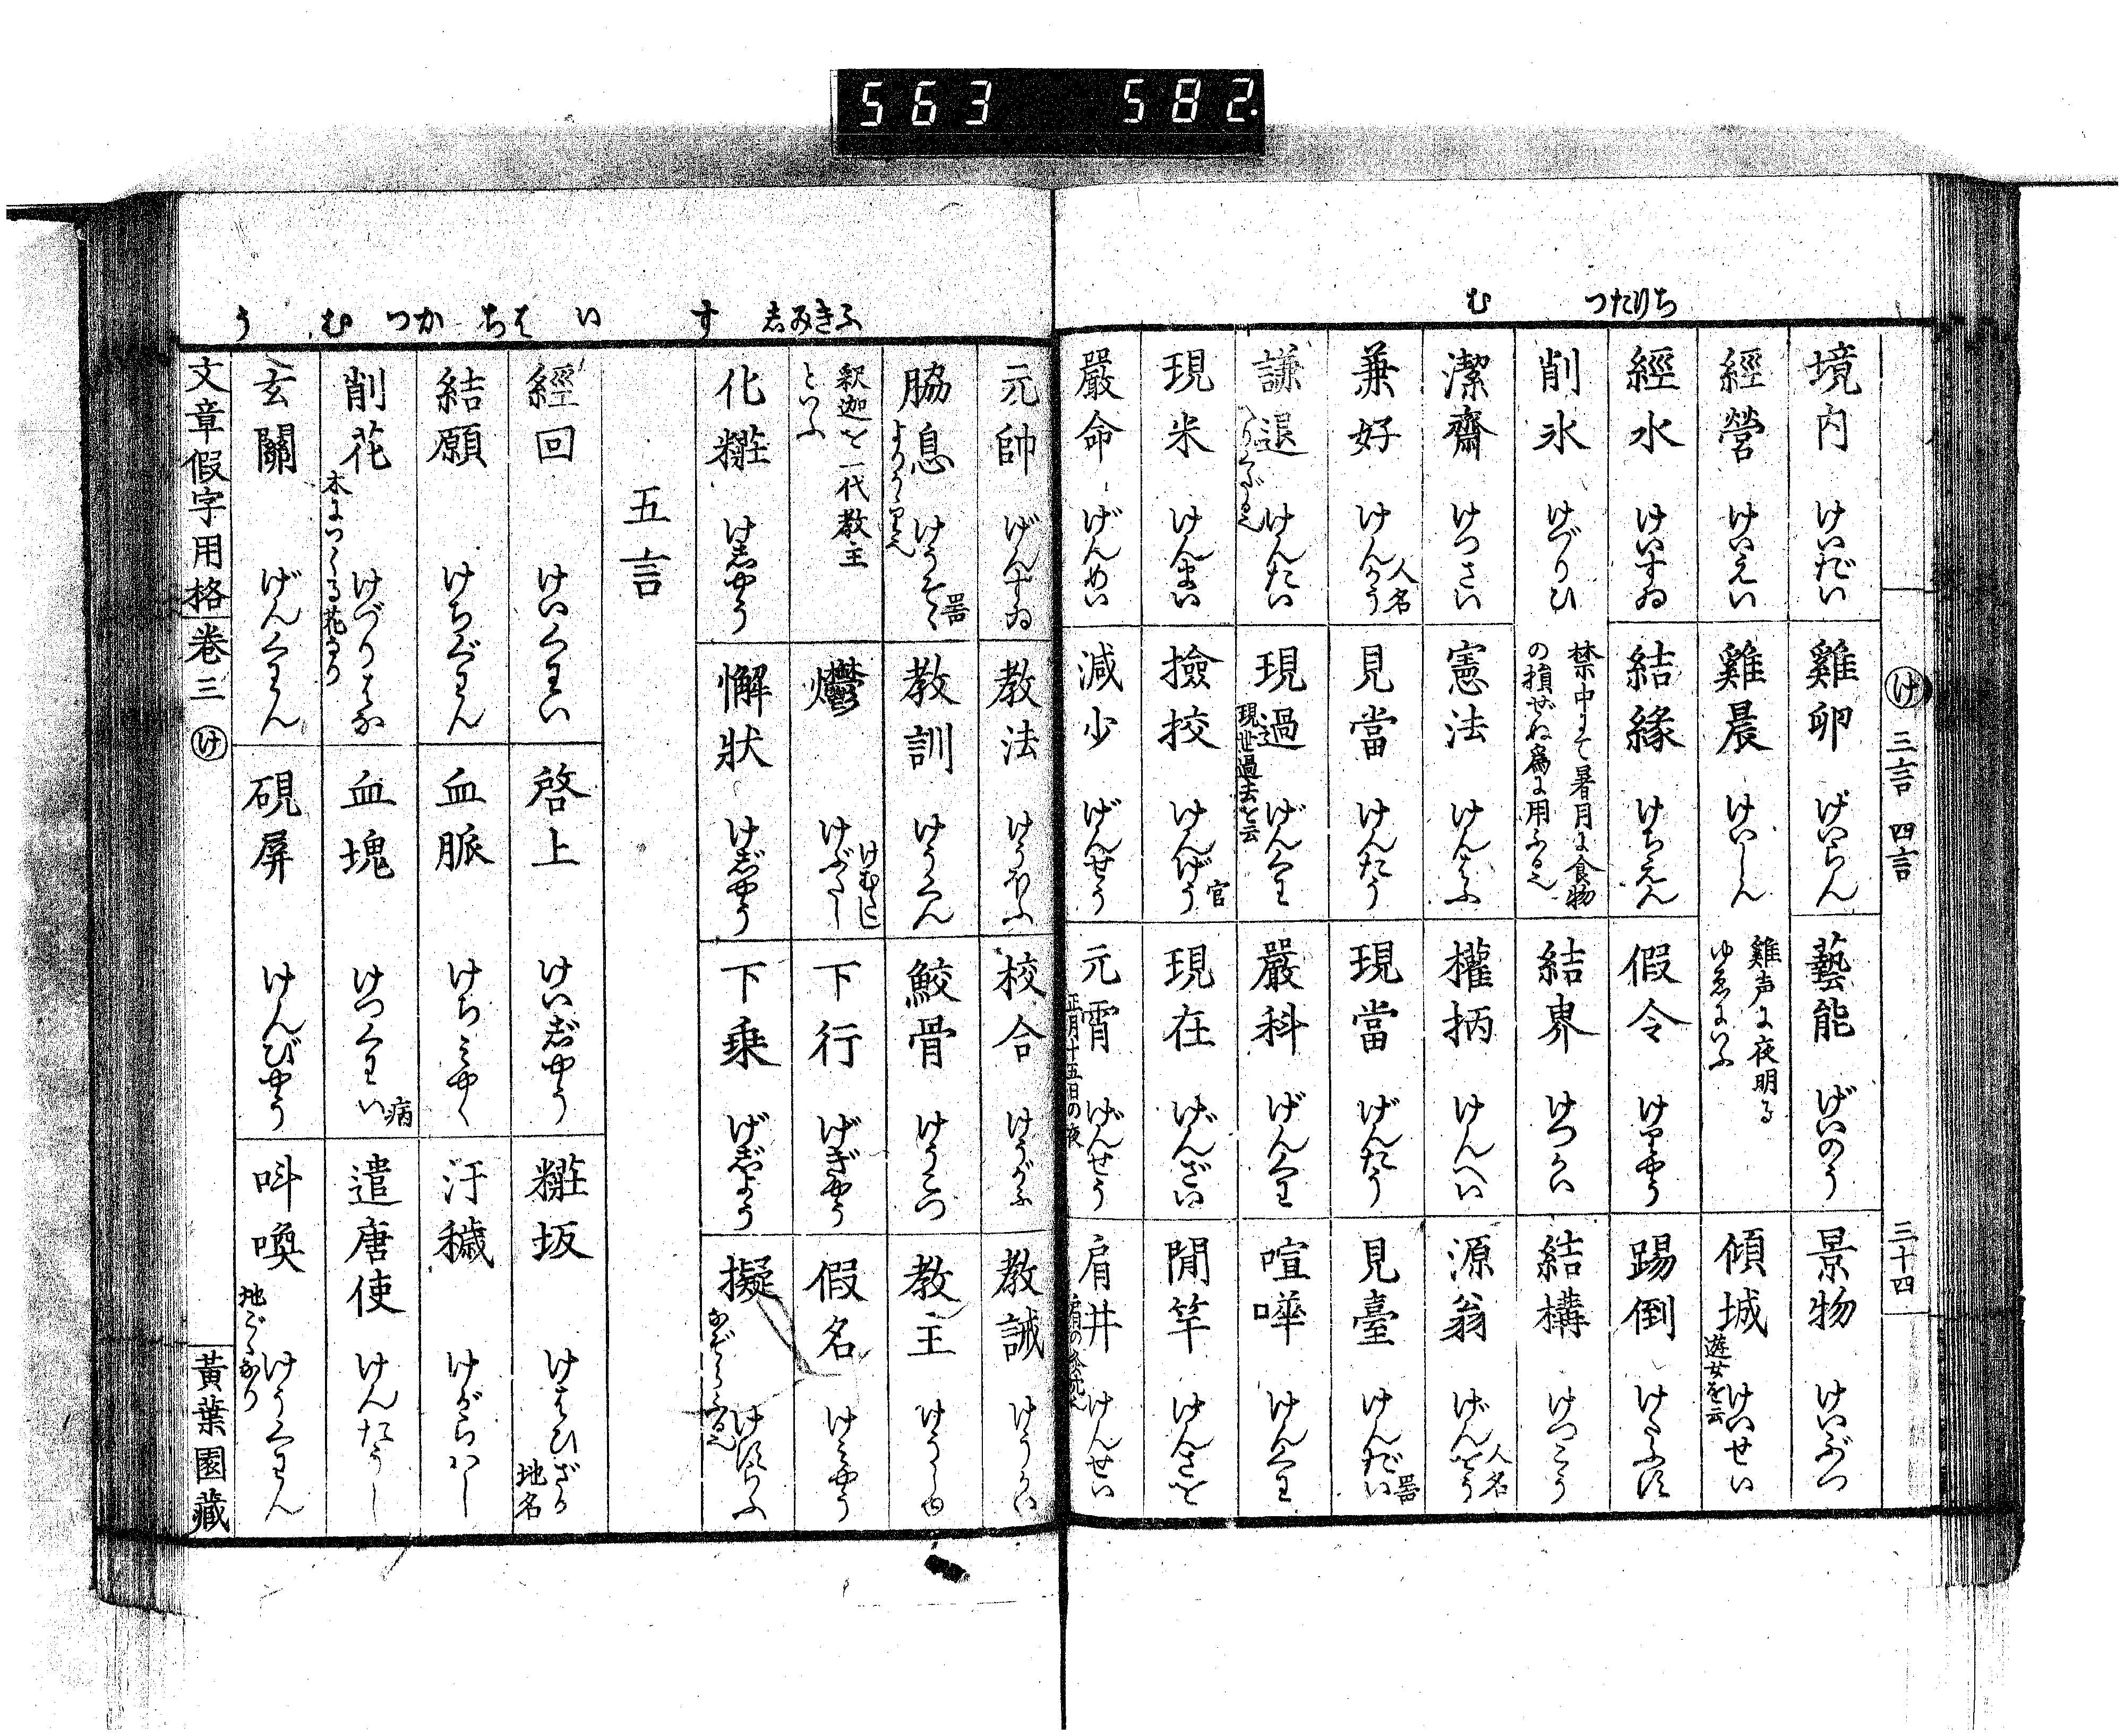 563 582.
ちりたつ む
け 三言 四言 三十四
境内 けいだい 雞卵 けいらん 藝能 げいのう 景物 けいぶつ
經營 けいえい 雞晨 けいしん 雞声に夜明る ゆゑにいふ 傾城 遊女を云 けいせい
經水 けいすゐ 結緣 けちえん 假令 けりやう 踢倒 けたふす
削氷 けづりひ 禁中にて暑月に食物 の損ぜぬ為に用ふる也 結界 けつかい 結構 けつこう
潔齋 けつさい 憲法 けんはふ 權柄 けんへい 源翁 げんをう 人名
兼好 けんかう 人名 見當 けんたう 現當 げんたう 見臺 けんだい 器
謙退 へりくだる也 けんたい 現過 現世過去を云 げんくわ 嚴科 げんくわ 喧嘩 けんくわ
現米 げんまい 撿挍 けんげう 官 現在 げんざい 間竿 けんざを
嚴命 げんめい 減少 げんせう 元宵 正月十五日の夜 げんせう 肩井 けんせい
ふきみし す い はち かつ む う
元帥 げんすゐ 教法 けうほふ 校合 けうがふ 教誡 けうかい
脇息 けうそく 器 教訓 けうくん 鮫骨 けうこつ 教主 けうしゆ
釈迦を一代教主 といふ けぶたし けむたし 下行 げぎやう 假名 けみやう
化粧 けしやう 懈狀 けじやう 下乗 げじよう 擬 なぞらふる也 けすらふ
五言
經回 けいくわい 啓上 けいじやう 粧坂 けはひざか 地名
結願 けちぐわん 血脈 けちみやく 汙穢 けがらはし
削花 木につくる花なり けづりはな 血塊 けつくわい 病 遣唐使 けんたうし
玄關 げんくわん 硯屏 けんびやう 呌喚 地ごくなり けうくわん
文章假字用格 卷三 け 黄葉園藏